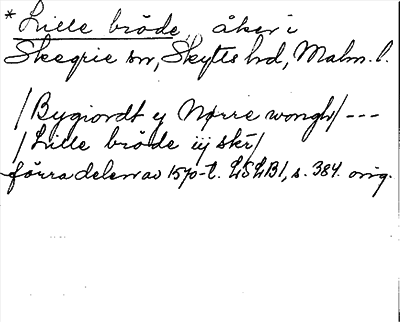 *Lille bröde, åker i
Skegrie sn, Skytts hd, Malm. l.
/Bygiordt y Nørre wongh/ ---
/Lille bröde iij skr/
förra delen av 1570-t. LSLB1, s. 384. orig.